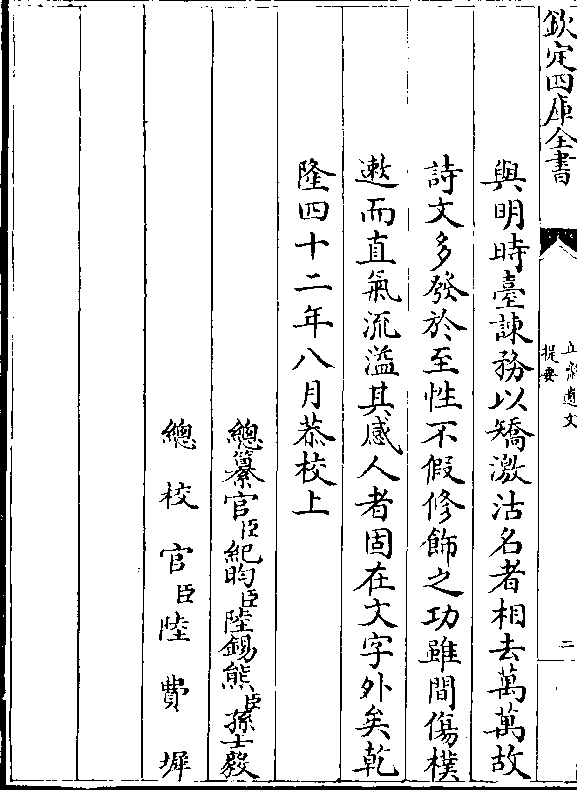 欽定四庫全書
立齋遺文
提要
二
與明時臺諫務以矯激沽名者相去萬萬故
詩文多發於至性不假修飾之功雖間傷樸
遬而直氣流溢其感人者固在文字外矣乾
隆四十二年八月恭校上
總纂官臣紀昀臣陸錫熊臣孫士毅
總校官臣陸費墀